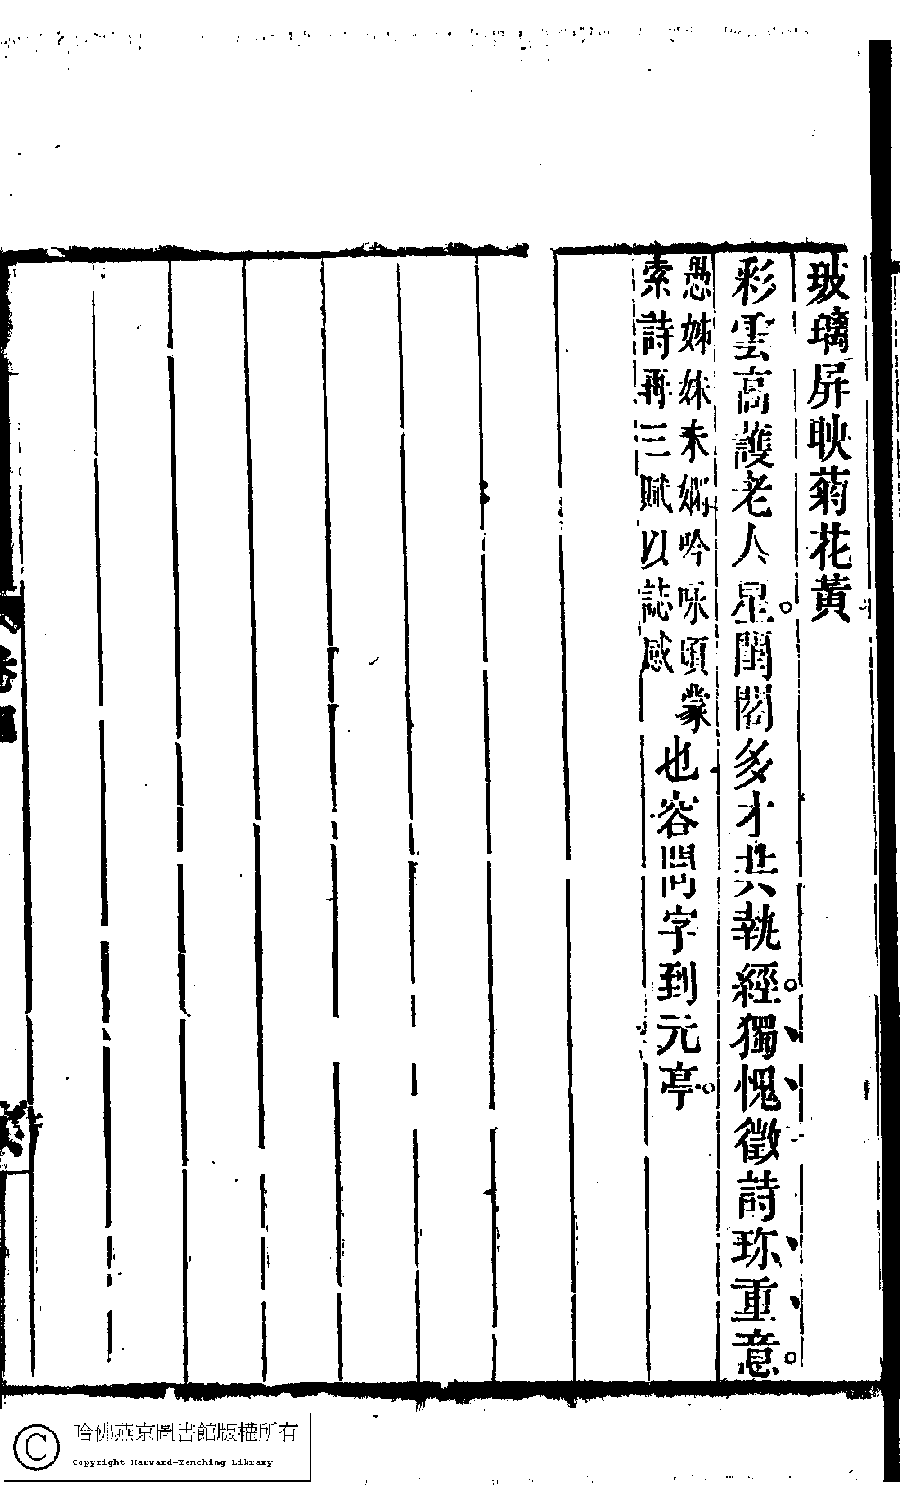 玻璃屏映菊花黃
彩雲高護老人星。閨閣多才共執經。獨愧徵詩珍重意。
愚姊妹未嫺吟咏頃蒙
索詩再三賦以誌感
也容問字到元亭。
卷四
哈佛燕京圖書館版權所有
Copyright Harvard-Yenching Library